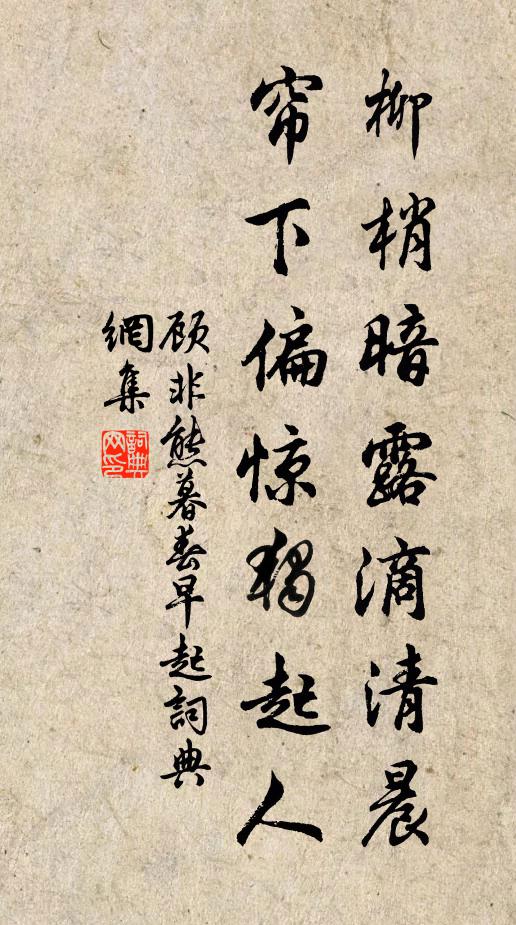 柳梢暗露滴清晨
帘下偏惊独起人
顾非熊暮春早起詞典
網集
詞典网印